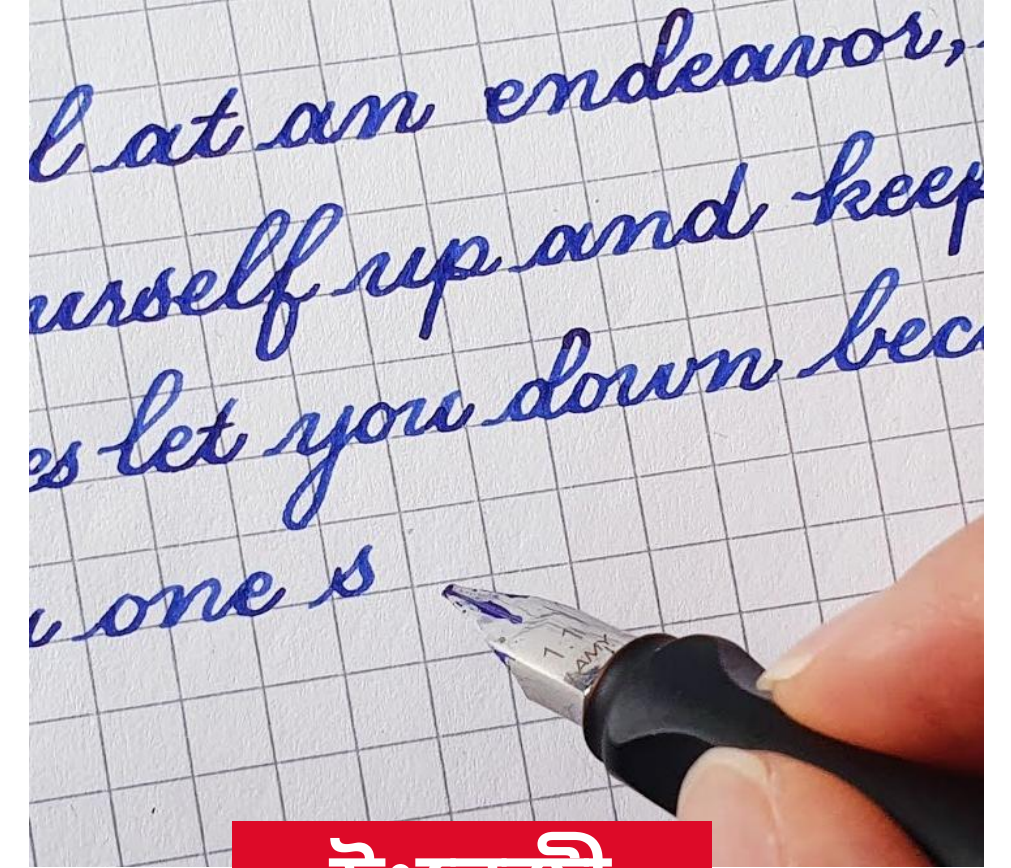 l at an endeavor,
urself up and keep
es let you down bec
one s
1.1
LAMY